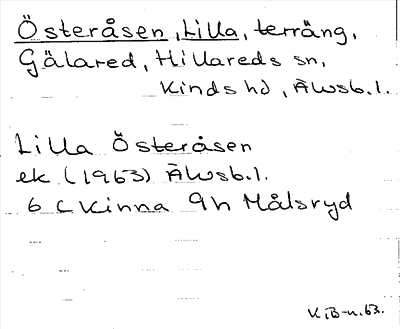 Österåsen, Lilla, terräng,
Gälared, Hillareds sn,
Kinds hd, Älvsb.l.
Lilla Österåsen
ek (1963) Älvsb.l.
6 C Kinna 9h Målsryd
K.B-n.63.